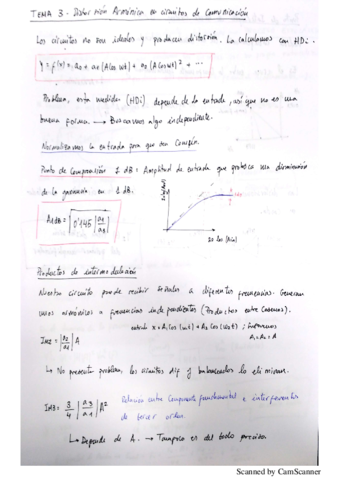 TEMA 3 - Distorsión Armónica en circuitos de Comunicación
Los circuitos no son ideales y producen distorsión. La calculamos con HDi.
y = f(x) = a0 + a1 (A cos wt) + a2 (A cos wt)² + ...
Problema, esta medida (HDi) depende de la entrada, así que no es una
buena forma → Buscamos algo independiente.
Normalizamos la entrada para que sea
Punto de Compresión 1 dB = Amplitud de entrada que produzca una disminución
de la ganancia en 1 dB.
A1dB = √0'145 |a1/a3|
20 log (Ain)
Productos de intermodulación
Nuestro circuito puede recibir señales a diferentes frecuencias. Generan
unos armónicos a frecuencias independientes (Productos entre Cosenos).
entrada x = A1 cos (w1t) + A2 cos (w2t) ;
A1 = A2 = A
IM2 = |a2/a1| A
↳ No presenta problema, los circuitos dif y balanceados lo eliminan.
IM3 = 3/4 |a3/a1| A²
Relación entre Componente fundamental e interferentes
de tercer orden.
↳ Depende de A. → Tampoco es del todo preciso.
Scanned by CamScanner